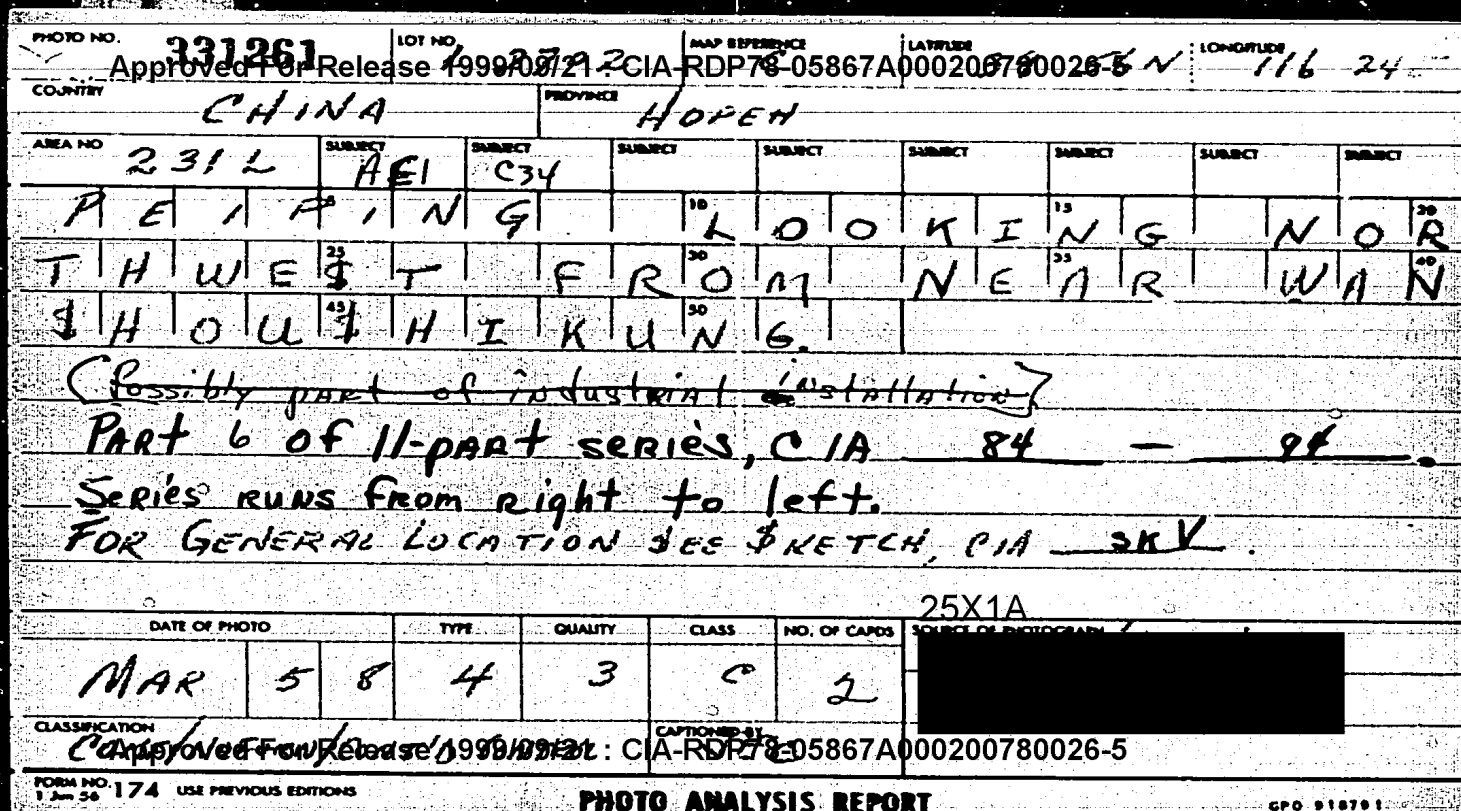 PHOTO NO. 331261 LOT NO. MAP REFERENCE LATITUDE N LONGITUDE 116 24
Approved For Release 1999/09/21 : CIA-RDP78-05867A000200780026-5
COUNTRY CHINA PROVINCE HOPEH
AREA NO 231L SUBJECT AE1 SUBJECT C34 SUBJECT SUBJECT SUBJECT SUBJECT SUBJECT SUBJECT
PEIPING 10 LOOKING 15 NOR 20
THWEST 25 FROM 30 NEAR 35 WAN 40
SHOUSHIKUNG. 45 50
(Possibly part of industrial installation)
PART 6 OF 11-PART SERIES, CIA 84 — 94.
SERIES RUNS FROM Right to left.
FOR GENERAL LOCATION SEE SKETCH, CIA SKV.
25X1A
DATE OF PHOTO TYPE QUALITY CLASS NO. OF CARDS SOURCE OF PHOTOGRAPH
MAR 58 4 3 C 2
CLASSIFICATION CAPTIONED BY
Approved For Release 1999/09/21 : CIA-RDP78-05867A000200780026-5
FORM NO. 174 USE PREVIOUS EDITIONS PHOTO ANALYSIS REPORT GPO 918791
1 Jun 56